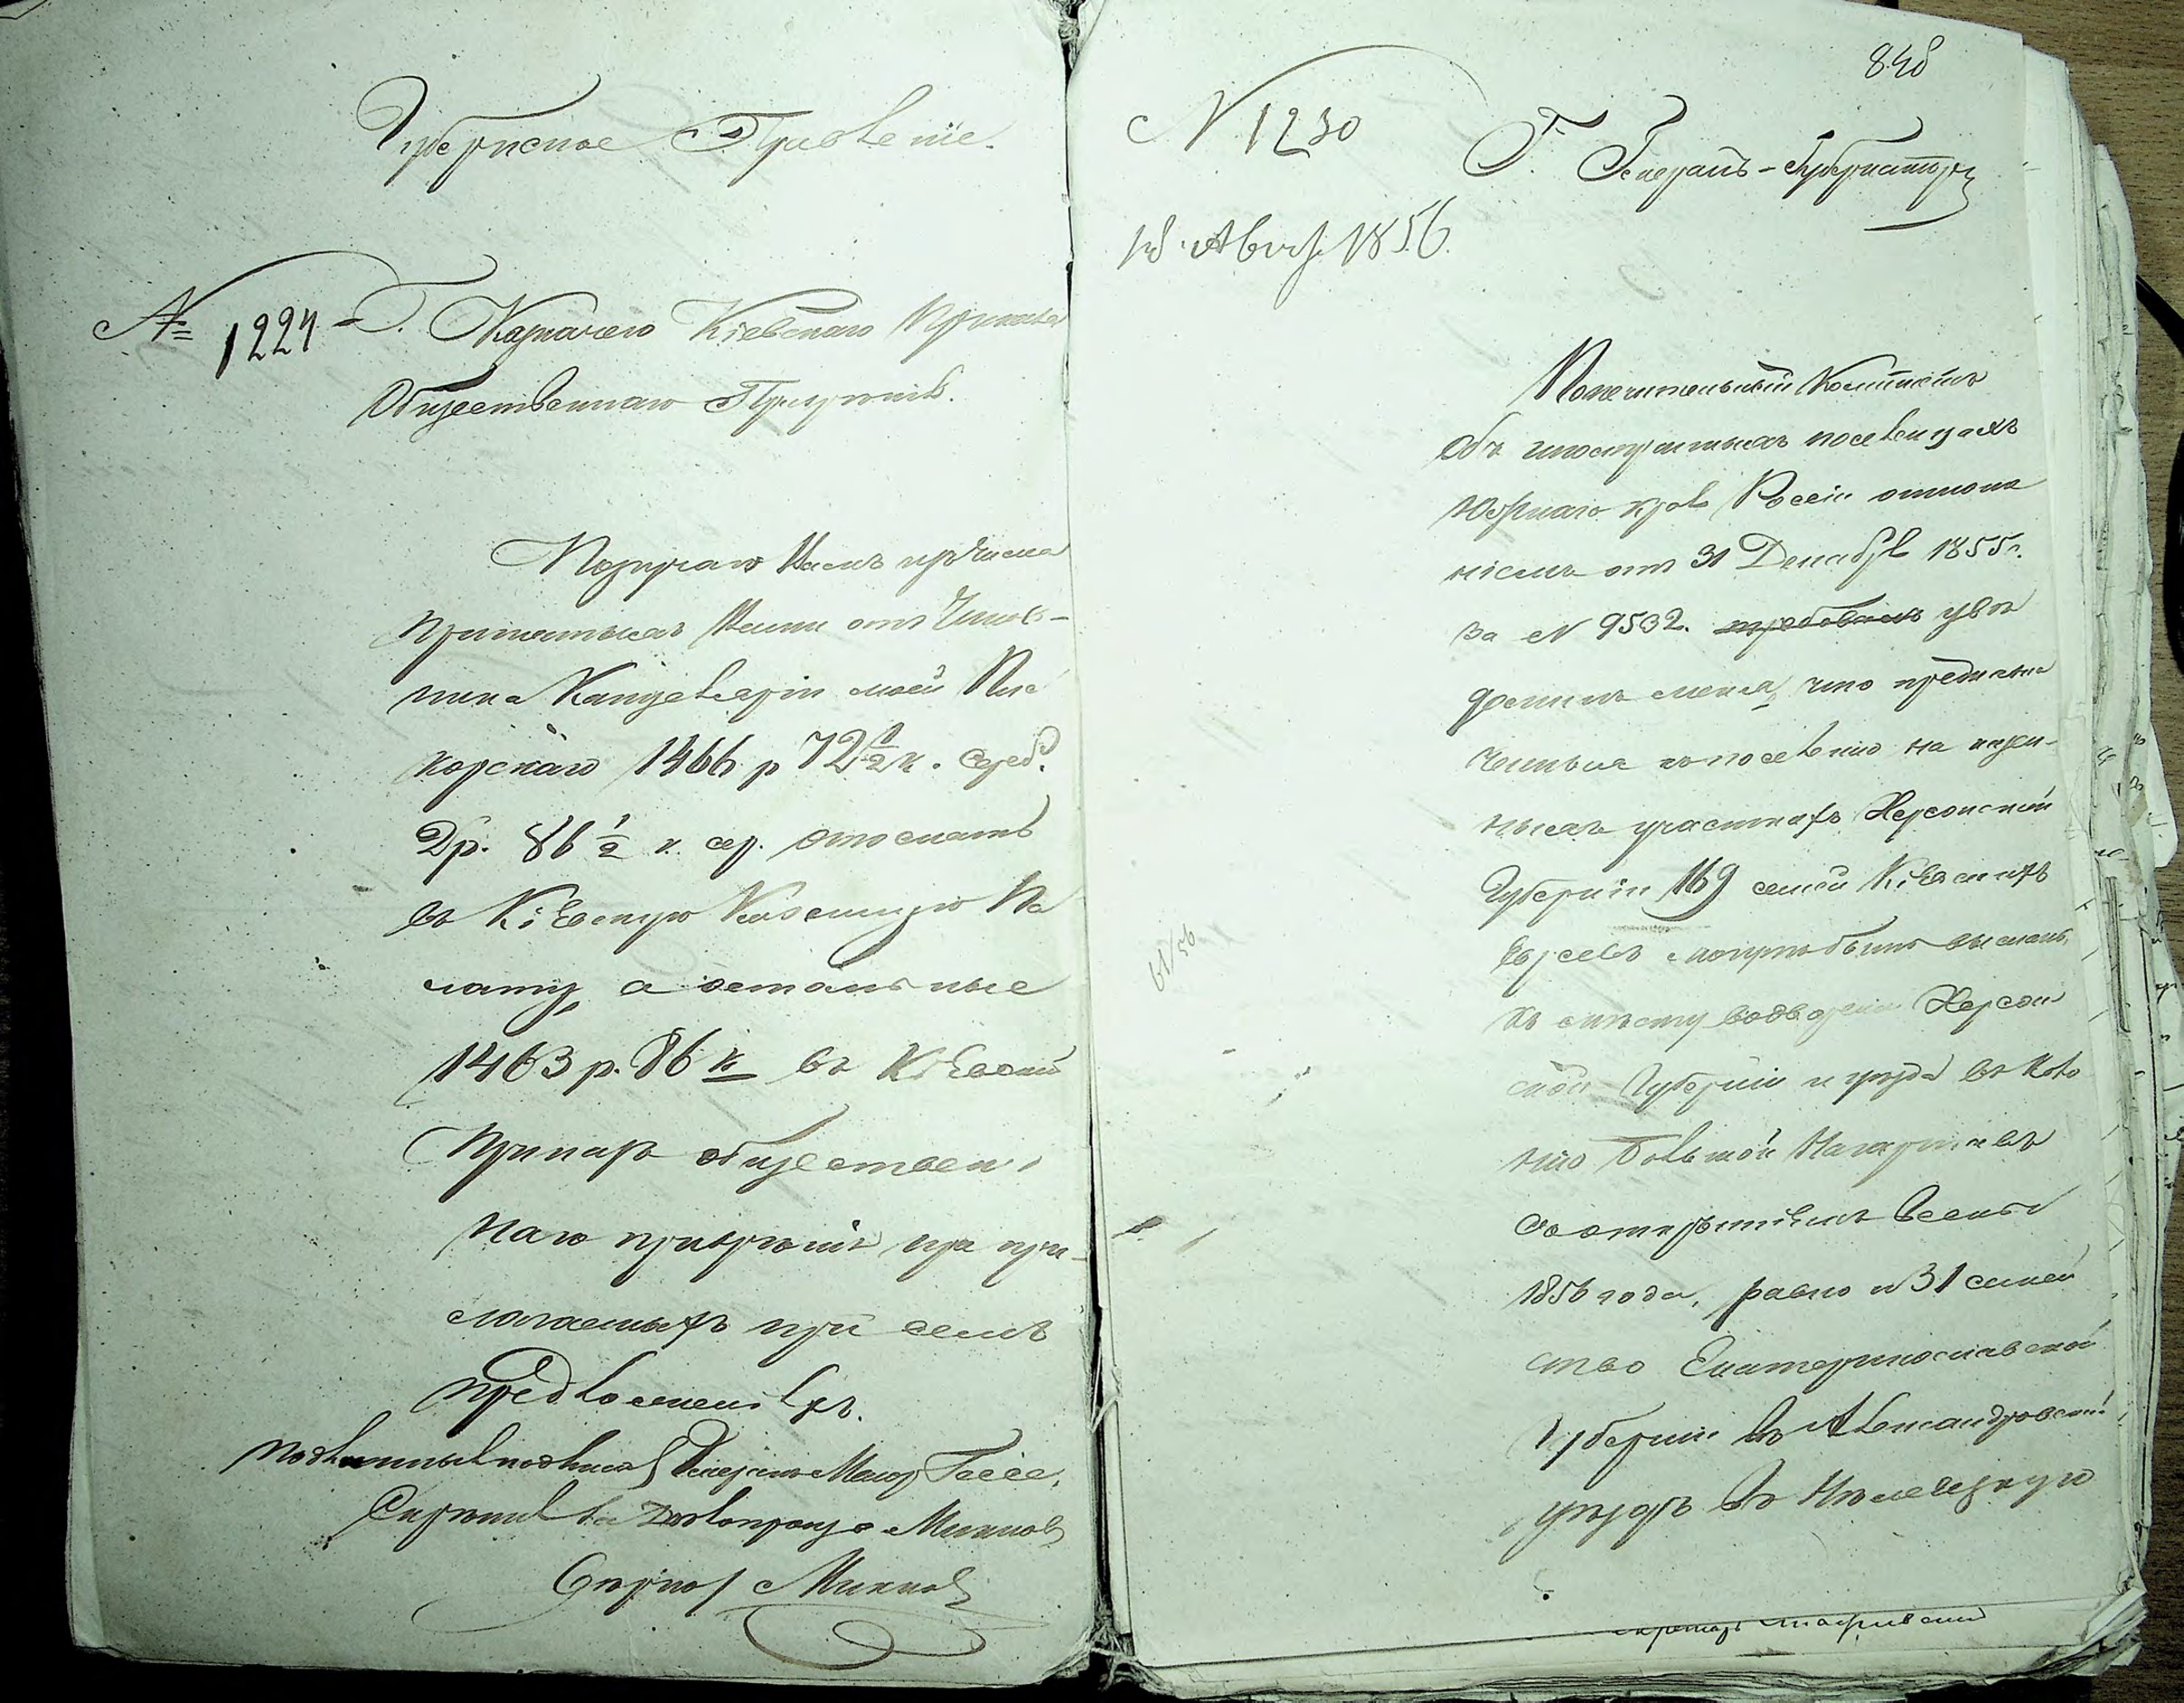 Губернское Правленіе.
№ 1224 - Г. Казначею Кіевскаго Приказа
Общественнаго Призрѣнія.
Поручаю Вамъ изъ числа
принятыхъ Вами отъ Чинов-
ника Канцеляріи моей
1466 р 72 1/2 к. сереб.
2 р. 86 1/2 к. сер. отослать
въ Кіевскую Казенную Па
лату, а остальные
1463 р. 86 к въ Кіевскій
Приказъ обществен
наго призрѣнія при при-
лагаемыхъ при семъ
предложеніяхъ.
Подлинный подписалъ Генералъ Маіоръ Гессе,
Скрѣпилъ за
Вѣрно:
848
N 1230
18 Авгус. 1856.
Г. Генералъ-Губернатору
Попечительный Комитетъ
объ иностранныхъ поселенцахъ
Южнаго края Россіи отноше
ніемъ отъ 31 Декабря 1855 г.
за N 9532. требовалъ увѣ
домилъ меня, что предназна
ченныя къ поселенію на казен-
ныхъ участкахъ Херсонской
Губерніи 169 семей Кіевскихъ
Евреевъ могутъ быть высланы
къ мѣсту водворенія Херсон
ской Губерніи и уѣзда въ Коло
нію Большой Нагартавъ
съ открытіемъ весны
1856 года, равно и 31 семей
ство Екатеринославской
Губерніи въ Александровскій
уѣздъ въ
61/56